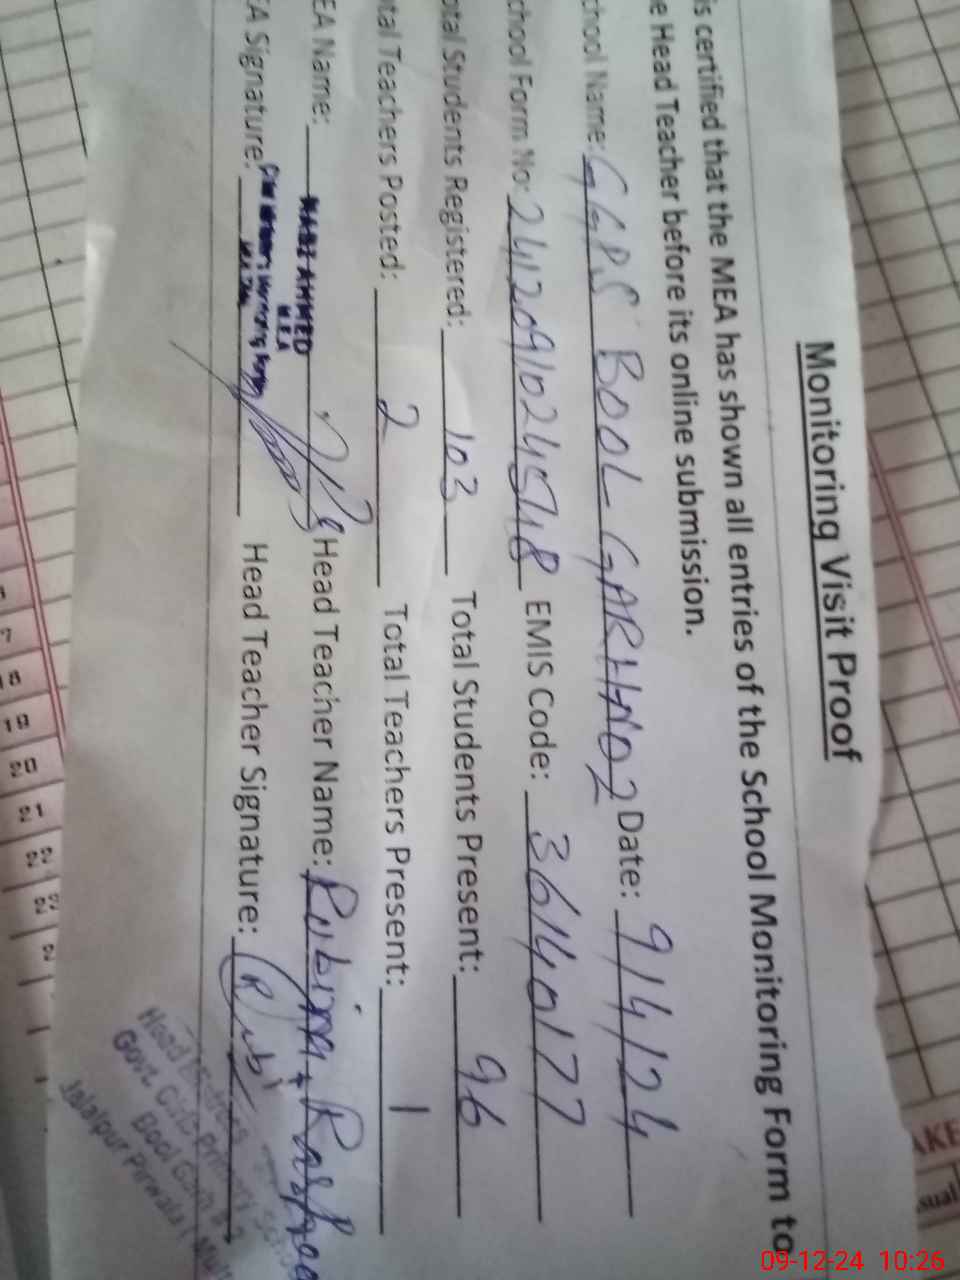 Monitoring Visit Proof
is certified that the MEA has shown all entries of the School Monitoring Form to
e Head Teacher before its online submission.
chool Name: GGPS BOOL GARH NO 2 Date: 9/4/24
chool Form No: EMIS Code: 36140177
otal Students Registered: 103 Total Students Present: 96
otal Teachers Posted: 2 Total Teachers Present: 1
EA Name: NABI AHMED Head Teacher Name: Rubina
M.E.A
EA Signature: Head Teacher Signature: Rubi
Head
Govt. Girls Primary
Bool Garh # 2
Jalalpur Pirwala
09-12-24 10:26